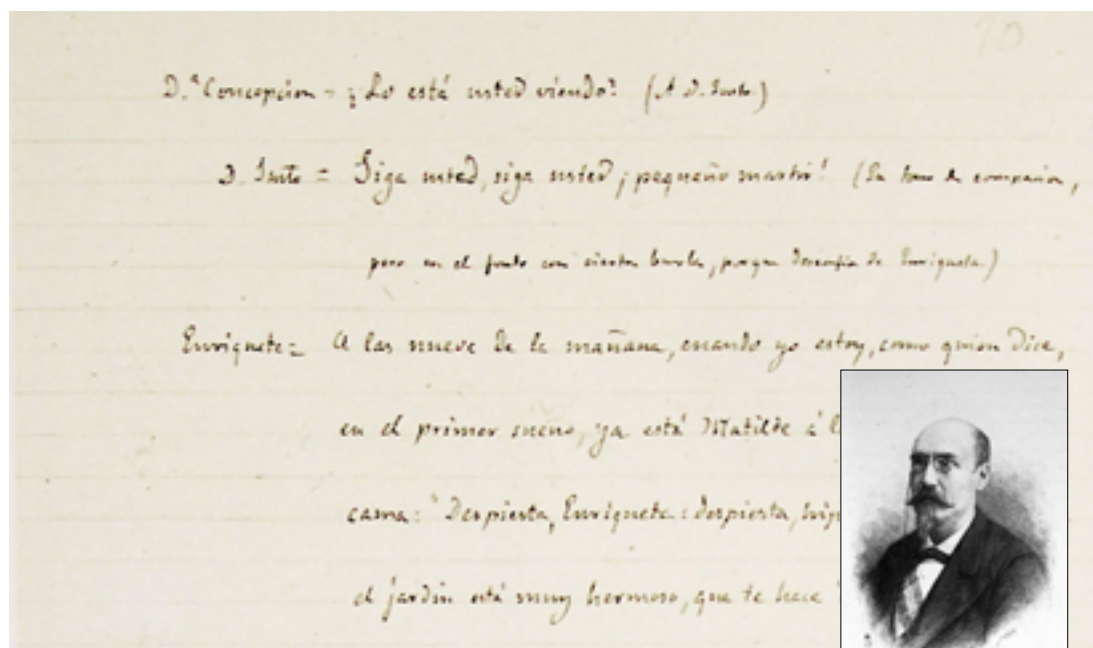 10
D.ª Concepcion = ¿Lo está usted viendo? (A D. Justo.)
D. Justo = Siga usted, siga usted ¡pequeño martir! (En tono de compasion,
pero en el fondo con cierta burla, porque desconfia de Enriqueta.)
Enriqueta = A las nueve de la mañana, cuando yo estoy, como quien dice,
en el primer sueño, ya está Matilde á l
cama: "Despierta, Enriqueta: despierta, hij
el jardin está muy hermoso, que te hace